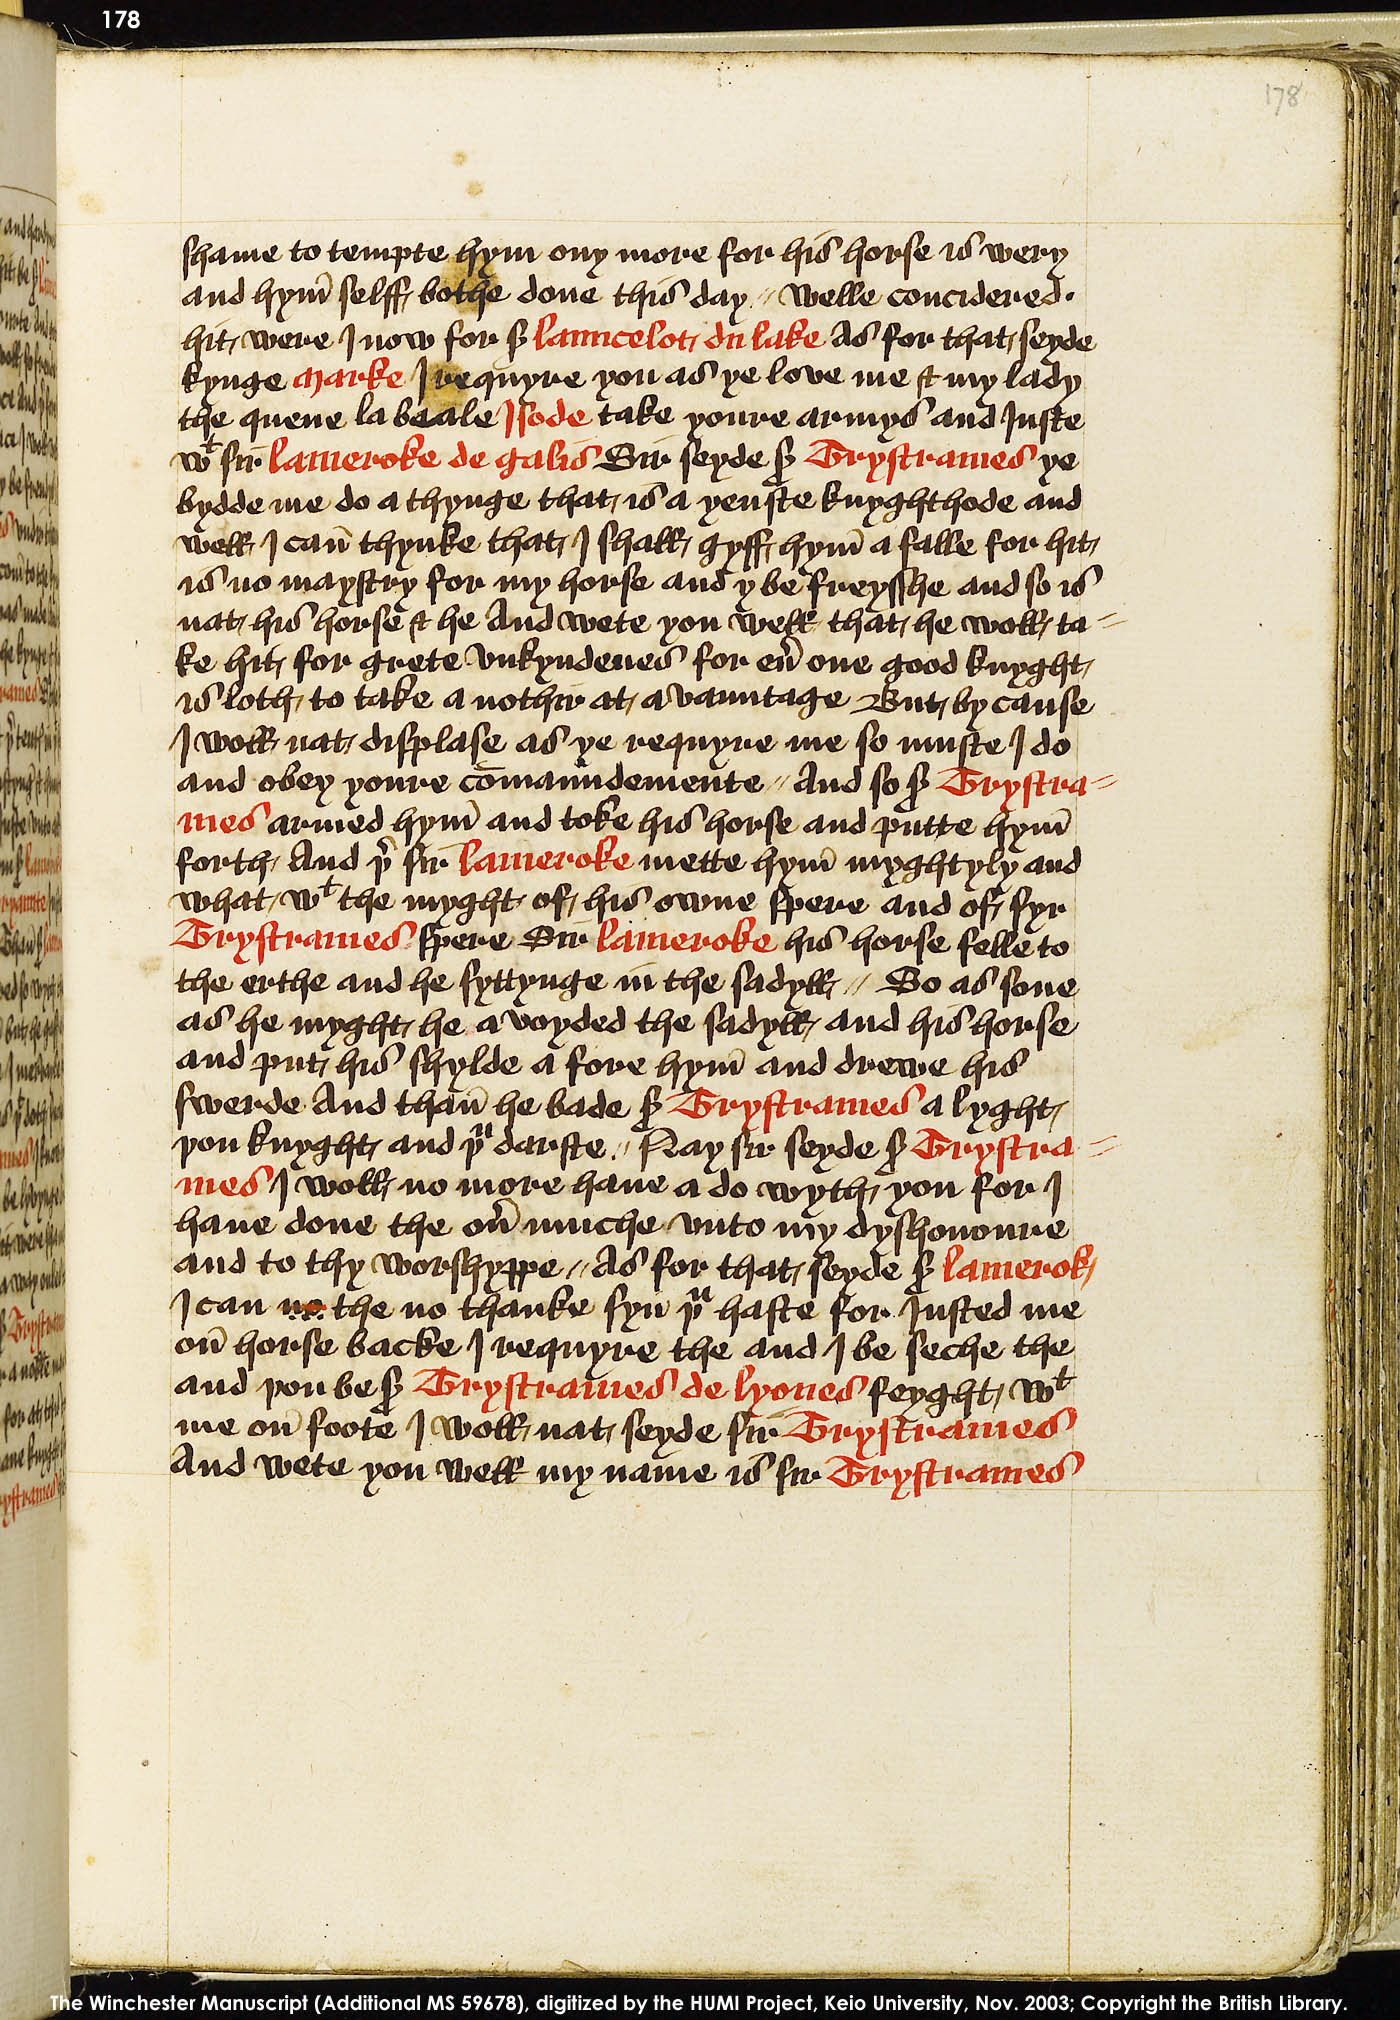 178
178
shame to tempte hym ony more for his horse is wery
and hym̄ selff bothe done this day // Welle concidered
hit were I now for sᵉ launcelot du lake As for that seyde
kynge Marke I requyre you as ye love me & my lady
the quene la beale Isode take youre armys and Juste
wᵗ sir lameroke de galis Sir seyde sᵉ Trystrames ye
bydde me do a thynge that is a yenste knyghthode and
well I can̄ thynke that I shall gyff hym̄ a falle for hit
is no maystry for my horse and y be freysshe and so is
nat his horse & he And wete you well that he woll ta=
ke hit for grete vnkyndenes for eu̾ one good knyght
is loth to take a nothir at avauntage But by cause
I woll nat displase as ye requyre me so muste I do
and obey youre com̄aundemente // And so sᵉ Trystra=
mes armed hym̄ and toke his horse and putte hym̄
forth And þᵉ sir lameroke mette hym̄ myghtyly and
what wᵗ the myght of his owne spere and of syr
Trystrames spere Sir lameroke his horse felle to
the erthe and he syttynge in the sadyll // So as sone
as he myght he avoyded the sadyll and his horse
and put his shylde a fore hym̄ and drewe his
swerde And than̄ he bade sᵉ Trystrames a lyght
þou knyght and þᵘ darste // Nay sir seyde sᵉ Trystra=
mes I woll no more haue a do wyth you for I
haue done the ou̾ muche vnto my dyshonoure
and to thy worshyppe // As for that seyde sᵉ lamerok
I can no the no thanke syn þᵘ haste for Justed me
on̄ horse backe I requyre the and I be seche the
and þou be sᵉ Trystrames de lyones feyght wᵗ
me on̄ foote I woll nat seyde sir Trystrames
And wete you well my name is sir Trystrames
The Winchester Manuscript (Additional MS 59678), digitized by the HUMI Project, Keio University, Nov. 2003; Copyright the British Library.